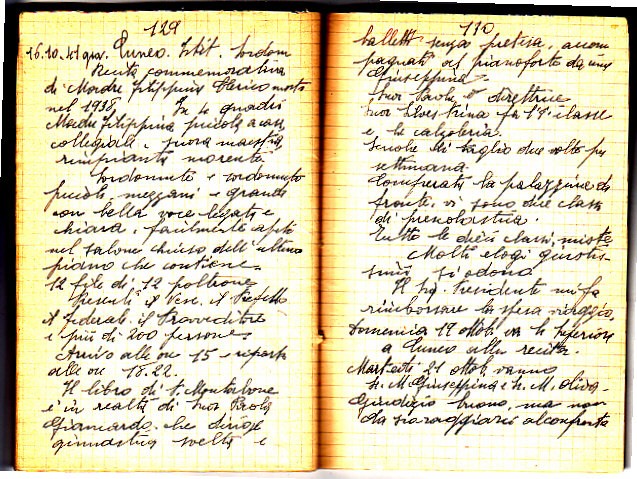 129
16.10.41 giov. Cuneo. Istit. Sordom
Recita commemorativa
di Madre Filippina morta
nel 1938. In 10 quadri
Madre Filippina piccola a casa
collegiale, suora maestra
rimpianta morente
Sordomute e sordomuti
piccoli, mezzani e grandi
con bella voce
chiara, facilmente
nel salone chiuso dell'ultimo
piano che contiene
12 file di 12 poltrone
Presenti il Vesc. il Prefetto
il federale, il Provveditore
e più di 200 persone
Arrivo alle ore 15 - riparto
alle ore 18.22.
Il libro di
è in realtà di Suor Paola
che dirige
ginnastica svelta e
110
balletti senza pretesa, accom
pagnati al pianoforte da una
Giuseppina
Suor Paola è direttrice
Suor Silvestrina fa la classe
e la calzoleria.
Scuola di taglio due volte per
settimana.
la palazzina di
fronte, vi sono due classi
di
Tutte le dieci classi, miste
Molti elogi
si odono
Il Sig. Presidente mi fa
rimborsare la spesa viaggio,
Domenica 19 ottob. va la Superiora
a Cuneo alla recita.
Martedì 21 ottob. vanno
S. M. Giuseppina e S. M. Oliva -
Giudizio buono, ma non
da al confronto